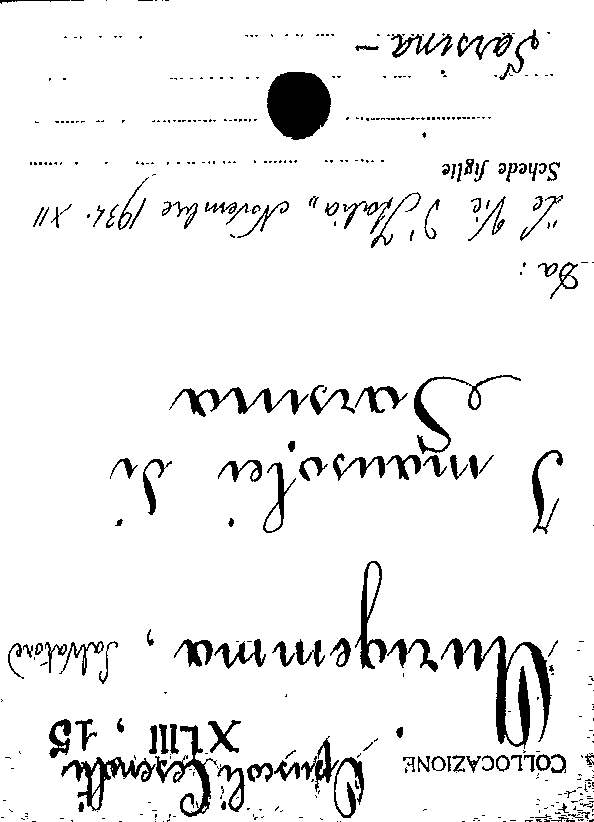 COLLOCAZIONE
Opuscoli Cesenati
XLIII, 15
Aurigemma, Salvatore
I mausolei di
Sarsina
Da:
"Le Vie d'Italia„ Novembre 1934. XII
Schede figlie
Sarsina -